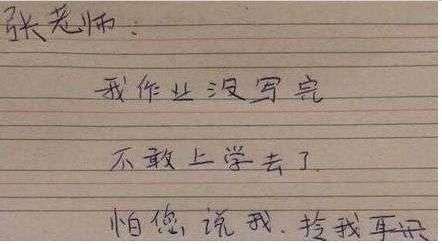 张老师：
我作业没写完
不敢上学去了
怕您说我.拎我耳